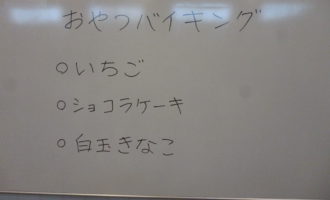 おやつバイキング
○いちご
○ショコラケーキ
○白玉きなこ